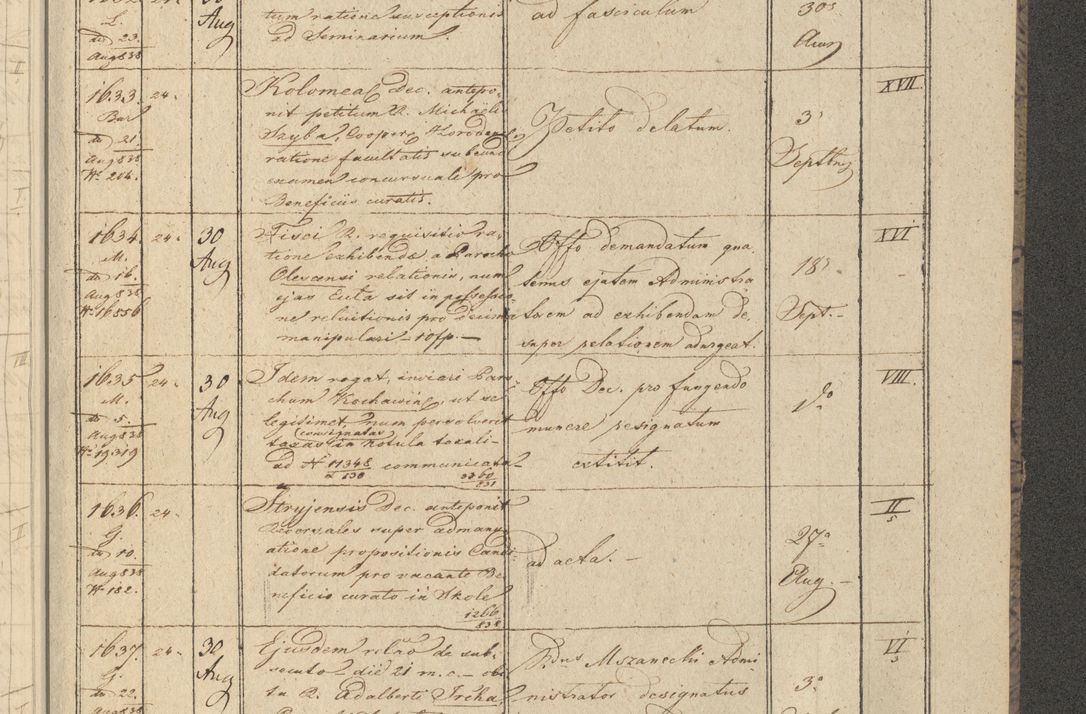 L.
dto 23.
Aug 838
Aug
tum ratione susceptionis
ad Seminarium.
ad fasciculum
30a
Aug
1633. 24.
Bar
dto 21.
Aug 838
No 204.
Kolomeae Dec. antepo-
nit petitum R. Michaeli
Szyba, Cooper.
ratione facultatis subeundi
examen concursuale pro
Beneficiis curatis.
Petito delatum.
3a
Septbris
XVII.
1634. 24.
M.
dto 16.
Aug 838
No 16556
30
Aug
Fisci R. requisitio ra-
tione exhibenda a Parocho
Olescensi relationis, num
ejus Ecclta sit in possessio-
ne reluitionis pro decima
manipulari
Offo demandatum qua-
tenus ejatem Administra-
torem ad exhibendam de-
super relationem adurgeat.
18a
Sept.
XVI
1635 24.
M.
dto 5.
Aug 838
No 19319
30
Aug
Idem rogat, inviari Paro-
chum Kochawinae, ut se
legitimet, num persolverit
taxas (consignatas) in notula taxali
ad N 11348
838
communicata
3360
831
Offo Dec. pro fungendo
munere resignatum
extitit.
do
VIII.
1636. 24.
G.
dto 10.
Aug 838
No 182.
Stryjensis Dec. anteponit
Reversales super admanu-
atione propositionis Candi-
datorum pro vacante Be-
neficio curato in Skole
1266
838
ad acta.
27a
Aug.
II
5
1637. 24.
G.
dto 22.
Aug 838
30
Aug
Ejusdem relao de sub-
secuto die 21 m. c. obi-
tu R. Adalberti
Rdus Mszanecki Admi-
nistrator designatus
3a
VI
3